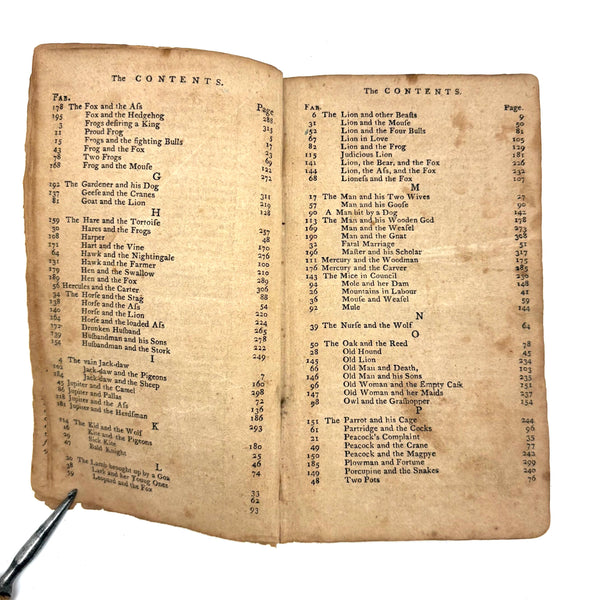 The CONTENTS.
FAB. Page
178 The Fox and the Aſs 281
195 Fox and the Hedgehog 315
3 Frogs deſiring a King 5
11 Proud Frog 17
15 Frogs and the fighting Bulls 23
43 Frog and the Fox 69
78 Two Frogs 122
168 Frog and the Mouſe 272
G
192 The Gardener and his Dog 311
137 Geeſe and the Cranes 219
81 Goat and the Lion 128
H
159 The Hare and the Tortoiſe 257
30 Hares and the Frogs 48
108 Harper 168
171 Hart and the Vine
64 Hawk and the Nightingale
131 Hawk and the Farmer
179 Hen and the Swallow
189 Hen and the Fox
56 Hercules and the Carter 88
34 The Horſe and the Stag 54
138 Horſe and the Aſs
140 Horſe and the Lion 224
Horſe and the loaded Aſs 264
172 Drunken Huſband
Huſbandman and his Sons
154 Huſbandman and the Stork 249
I
4 The vain Jack-daw 7
102 Jack-daw and the Pigeons 160
184 Jack-daw and the Sheep 298
45 Jupiter and the Camel 72
86 Jupiter and Pallas 136
Jupiter and the Aſs
181 Jupiter and the Herdſman 293
K
114 The Kid and the Wolf 180
16 Kite and the Pigeons 25
29 Sick Kite 46
47 Bald Knight 74
L
20 The Lamb brought up by a Goa 33
38 Lark and her Young Ones 62
59 Leopard and the Fox 93
The CONTENTS.
FAB. Page.
6 The Lion and other Beaſts 9
31 Lion and the Mouſe 50
52 Lion and the Four Bulls 81
67 Lion in Love 105
82 Lion and the Frog 129
115 Judicious Lion 181
141 Lion, the Bear, and the Fox 226
144 Lion, the Aſs, and the Fox 232
68 Lioneſs and the Fox 107
M
17 The Man and his Two Wives 27
57 Man and his Gooſe 90
90 A Man bit by a Dog 142
113 The Man and his Wooden God 178
169 Man and the Weaſel 273
190 Man and the Gnat 308
32 Fatal Marriage 51
196 Maſter and his Scholar 317
111 Mercury and the Woodman 175
176 Mercury and the Carver 285
143 The Mice in Council 230
94 Mole and her Dam 148
26 Mountains in Labour 41
36 Mouſe and Weaſel 59
92 Mule 144
N
39 The Nurſe and the Wolf 64
O
50 The Oak and the Reed 78
28 Old Hound 45
95 Old Lion
66 Old Man and Death, 103
186 Old Man and his Sons
96 Old Woman and the Empty Caſk 151
97 Old Woman and her Maids
98 Owl and the Graſhopper 154
P
151 The Parrot and his Cage 244
61 Partridge and the Cocks 96
21 Peacock's Complaint 35
49 Peacock and the Crane 77
150 Peacock and the Magpye 242
185 Plowman and Fortune 299
149 Porcupine and the Snakes 240
48 Two Pots 76